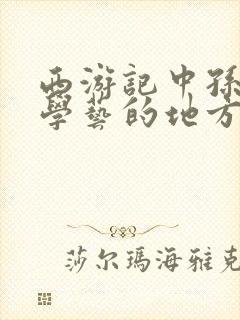 西游記中孫
學藝的地方
莎尔瑪海雅克